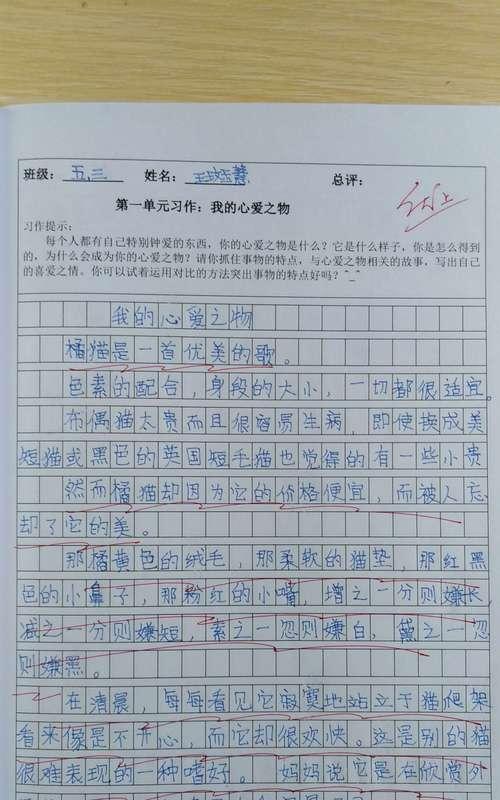 班级：五、三 姓名：王 慧 总评：
第一单元习作：我的心爱之物
习作提示：
每个人都有自己特别钟爱的东西，你的心爱之物是什么？它是什么样子，你是怎么得到
的，为什么会成为你的心爱之物？请你抓住事物的特点，与心爱之物相关的故事，写出自己
的喜爱之情。你可以试着运用对比的方法突出事物的特点好吗？^_^
我的心爱之物
橘猫是一首优美的歌。
色素的配合，身段的大小，一切都很适宜。
布偶猫太贵而且很容易生病，即使换成美
短猫或黑色的英国短毛猫也觉得的有一些小贵
然而橘猫却因为它的价格便宜，而被人忘
却了它的美。
那橘黄色的绒毛，那柔软的猫垫，那红黑
色的小鼻子，那粉红的小嘴，增之一分则嫌长，
减之一分则嫌短，素之一忽则嫌白，黛之一忽
则嫌黑。
在清晨，每每看见它寂寞地站立于猫爬架
看来像是不开心，而它却很欢快。这是别的猫
很难表现的一种嗜好。妈妈说它是在欣赏外